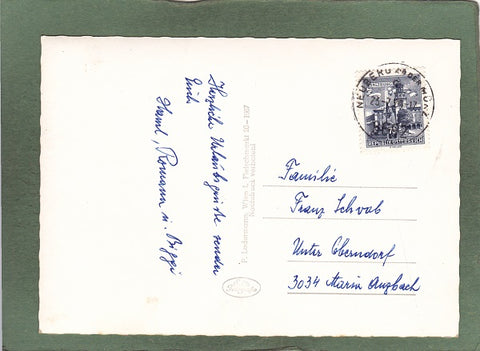 Herzliche Urlaubsgrüße senden
Euch
Hansl, Romana u. Biggi
P. Ledermann, Wien I, Fleischmarkt 20 - 1967
Nachdruck verboten!
NEUBERG AN DER MÜRZ
8692
REPUBLIK ÖSTERREICH
Familie
Franz Schwab
Unter Oberndorf
3034 Maria Anzbach